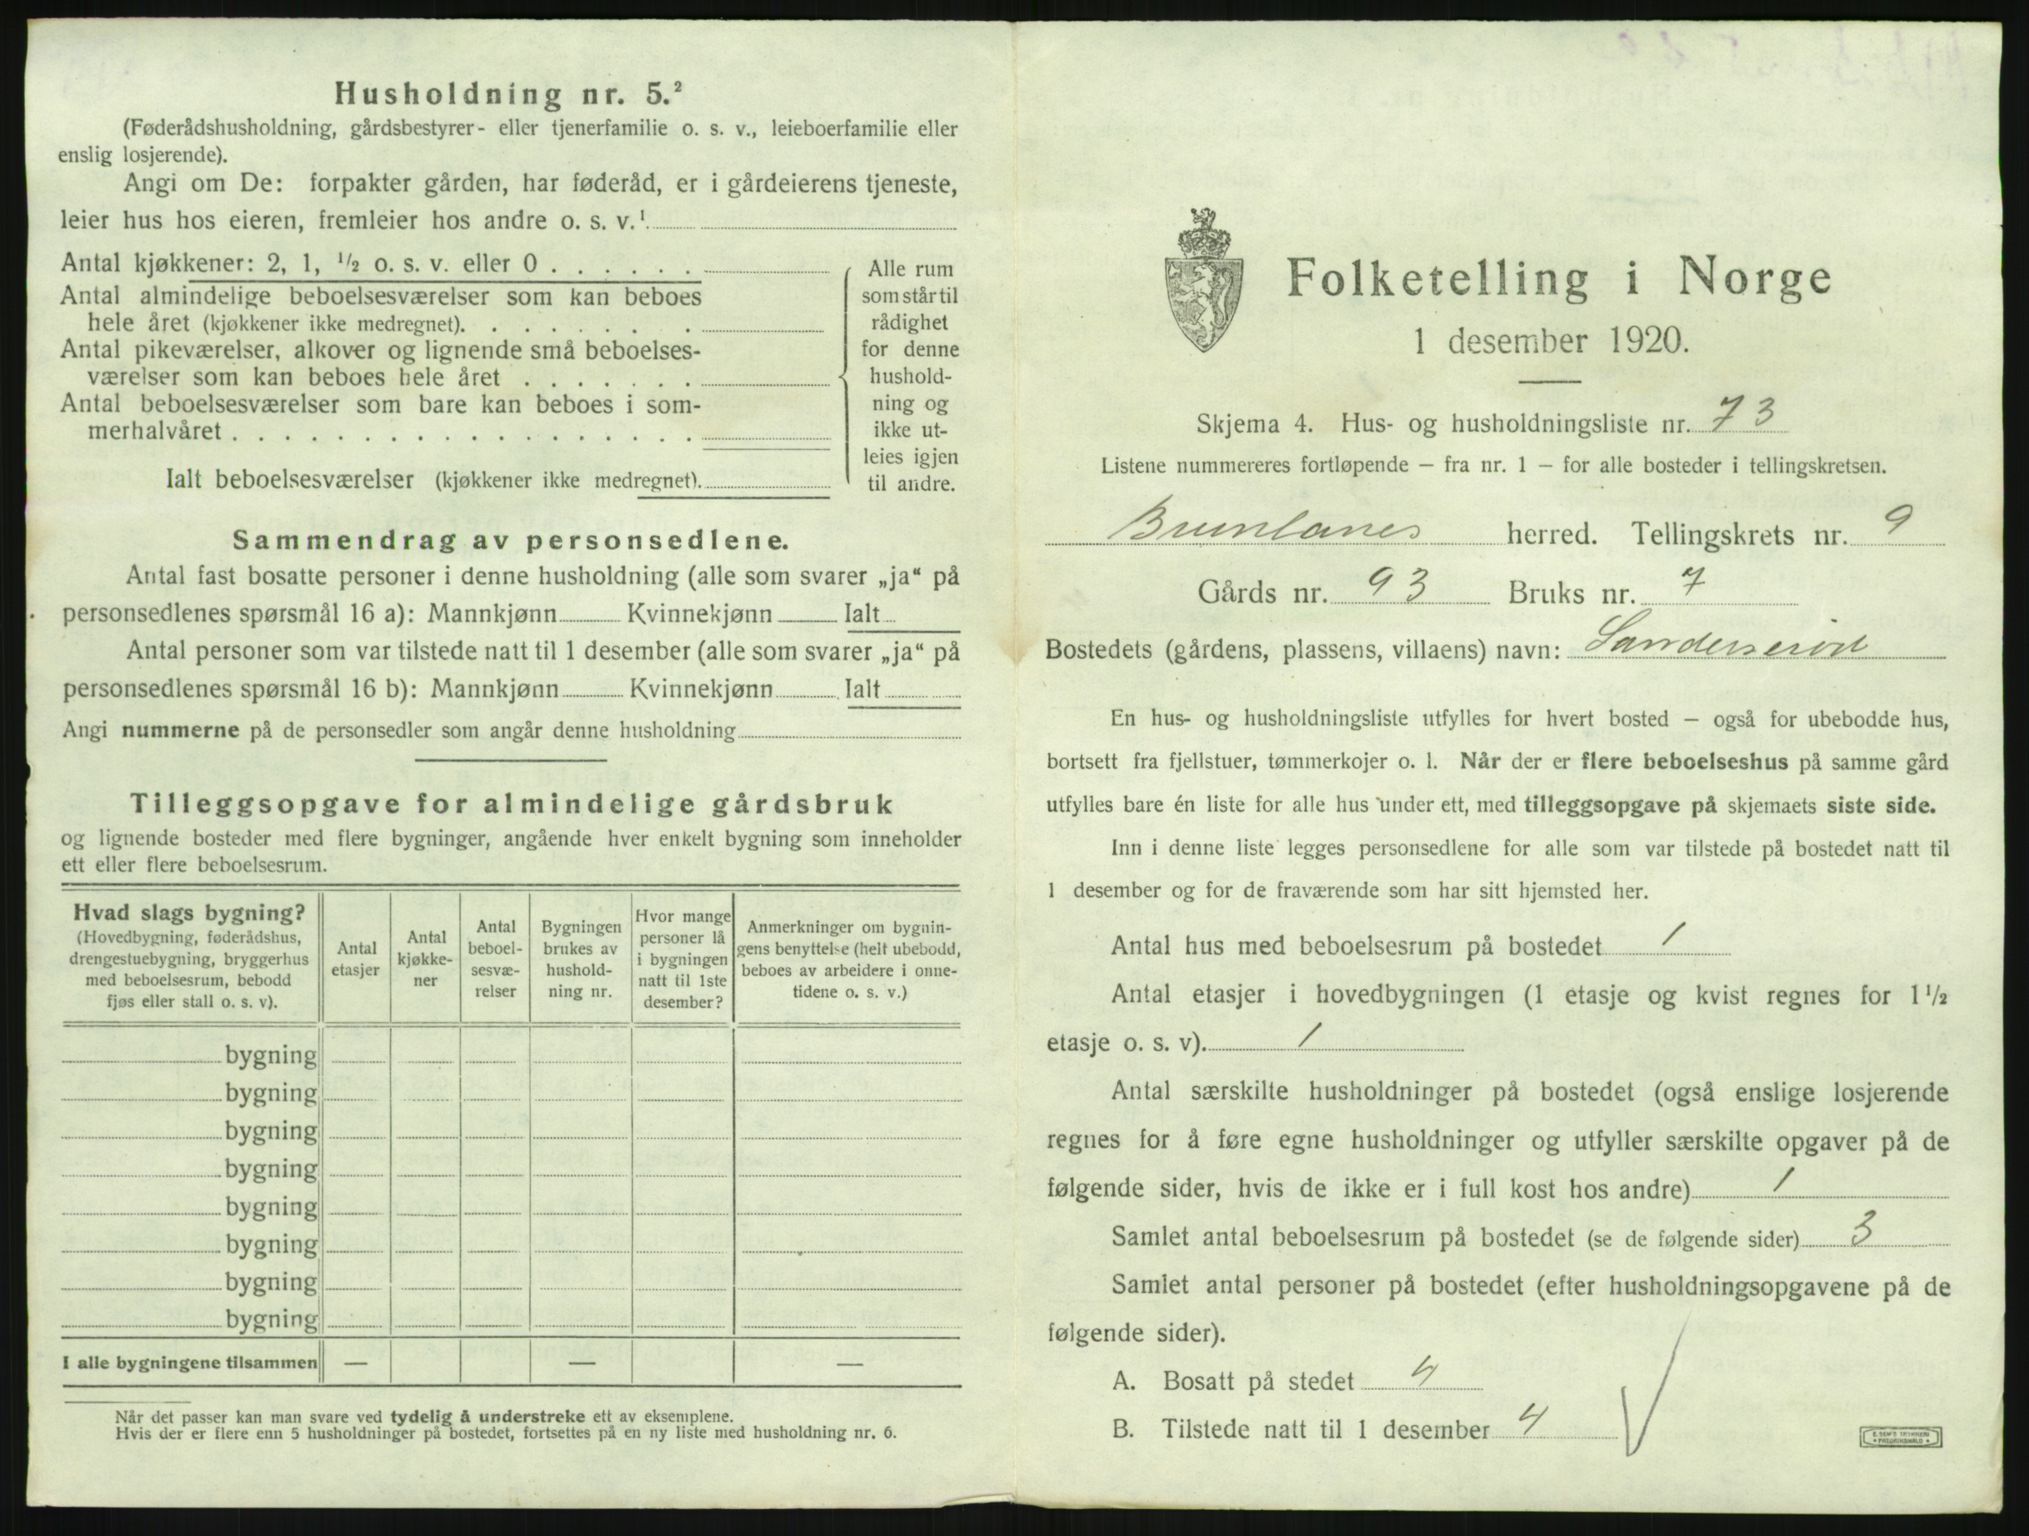 Husholdning nr. 5.²
(Føderådshusholdning, gårdsbestyrer- eller tjenerfamilie o. s. v., leieboerfamilie eller
enslig losjerende).
Angi om De: forpakter gården, har føderåd, er i gårdeierens tjeneste,
leier hus hos eieren, fremleier hos andre o. s. v.¹
Antal kjøkkener: 2, 1, ½ o. s. v. eller 0
Antal almindelige beboelsesværelser som kan beboes
hele året (kjøkkener ikke medregnet).
Antal pikeværelser, alkover og lignende små beboelses-
værelser som kan beboes hele året
Antal beboelsesværelser som bare kan beboes i som-
merhalvåret
Ialt beboelsesværelser (kjøkkener ikke medregnet).
Alle rum
som står til
rådighet
for denne
hushold-
ning og
ikke ut-
leies igjen
til andre.
Sammendrag av personsedlene.
Antal fast bosatte personer i denne husholdning (alle som svarer „ja“ på
personsedlenes spørsmål 16 a): Mannkjønn Kvinnekjønn Ialt
Antal personer som var tilstede natt til 1 desember (alle som svarer „ja“ på
personsedlenes spørsmål 16 b): Mannkjønn Kvinnekjønn Ialt
Angi nummerne på de personsedler som angår denne husholdning
Tilleggsopgave for almindelige gårdsbruk
og lignende bosteder med flere bygninger, angående hver enkelt bygning som inneholder
ett eller flere beboelsesrum.
Hvad slags bygning?
(Hovedbygning, føderådshus,
drengestuebygning, bryggerhus
med beboelsesrum, bebodd
fjøs eller stall o. s. v).
Antal
etasjer
Antal
kjøkke-
ner
Antal
beboel-
sesvæ-
relser
Bygningen
brukes av
hushold-
ning nr.
Hvor mange
personer lå
i bygningen
natt til 1ste
desember?
Anmerkninger om bygnin-
gens benyttelse (helt ubebodd,
beboes av arbeidere i onne-
tidene o. s. v.)
bygning
bygning
bygning
bygning
bygning
bygning
bygning
bygning
I alle bygningene tilsammen — — —
Når det passer kan man svare ved tydelig å understreke ett av eksemplene.
Hvis der er flere enn 5 husholdninger på bostedet, fortsettes på en ny liste med husholdning nr. 6.
Folketelling i Norge
1 desember 1920.
Skjema 4. Hus- og husholdningsliste nr. 73
Listene nummereres fortløpende – fra nr. 1 – for alle bosteder i tellingskretsen.
Brunlanes herred. Tellingskrets nr. 9
Gårds nr. 93 Bruks nr. 7
Bostedets (gårdens, plassens, villaens) navn: Sanderserød
En hus- og husholdningsliste utfylles for hvert bosted – også for ubebodde hus,
bortsett fra fjellstuer, tømmerkojer o. l. Når der er flere beboelseshus på samme gård
utfylles bare én liste for alle hus under ett, med tilleggsopgave på skjemaets siste side.
Inn i denne liste legges personsedlene for alle som var tilstede på bostedet natt til
1 desember og for de fraværende som har sitt hjemsted her.
Antal hus med beboelsesrum på bostedet 1
Antal etasjer i hovedbygningen (1 etasje og kvist regnes for 1½
etasje o. s. v). 1
Antal særskilte husholdninger på bostedet (også enslige losjerende
regnes for å føre egne husholdninger og utfyller særskilte opgaver på de
følgende sider, hvis de ikke er i full kost hos andre) 1
Samlet antal beboelsesrum på bostedet (se de følgende sider) 3
Samlet antal personer på bostedet (efter husholdningsopgavene på de
følgende sider).
A. Bosatt på stedet 4
B. Tilstede natt til 1 desember 4